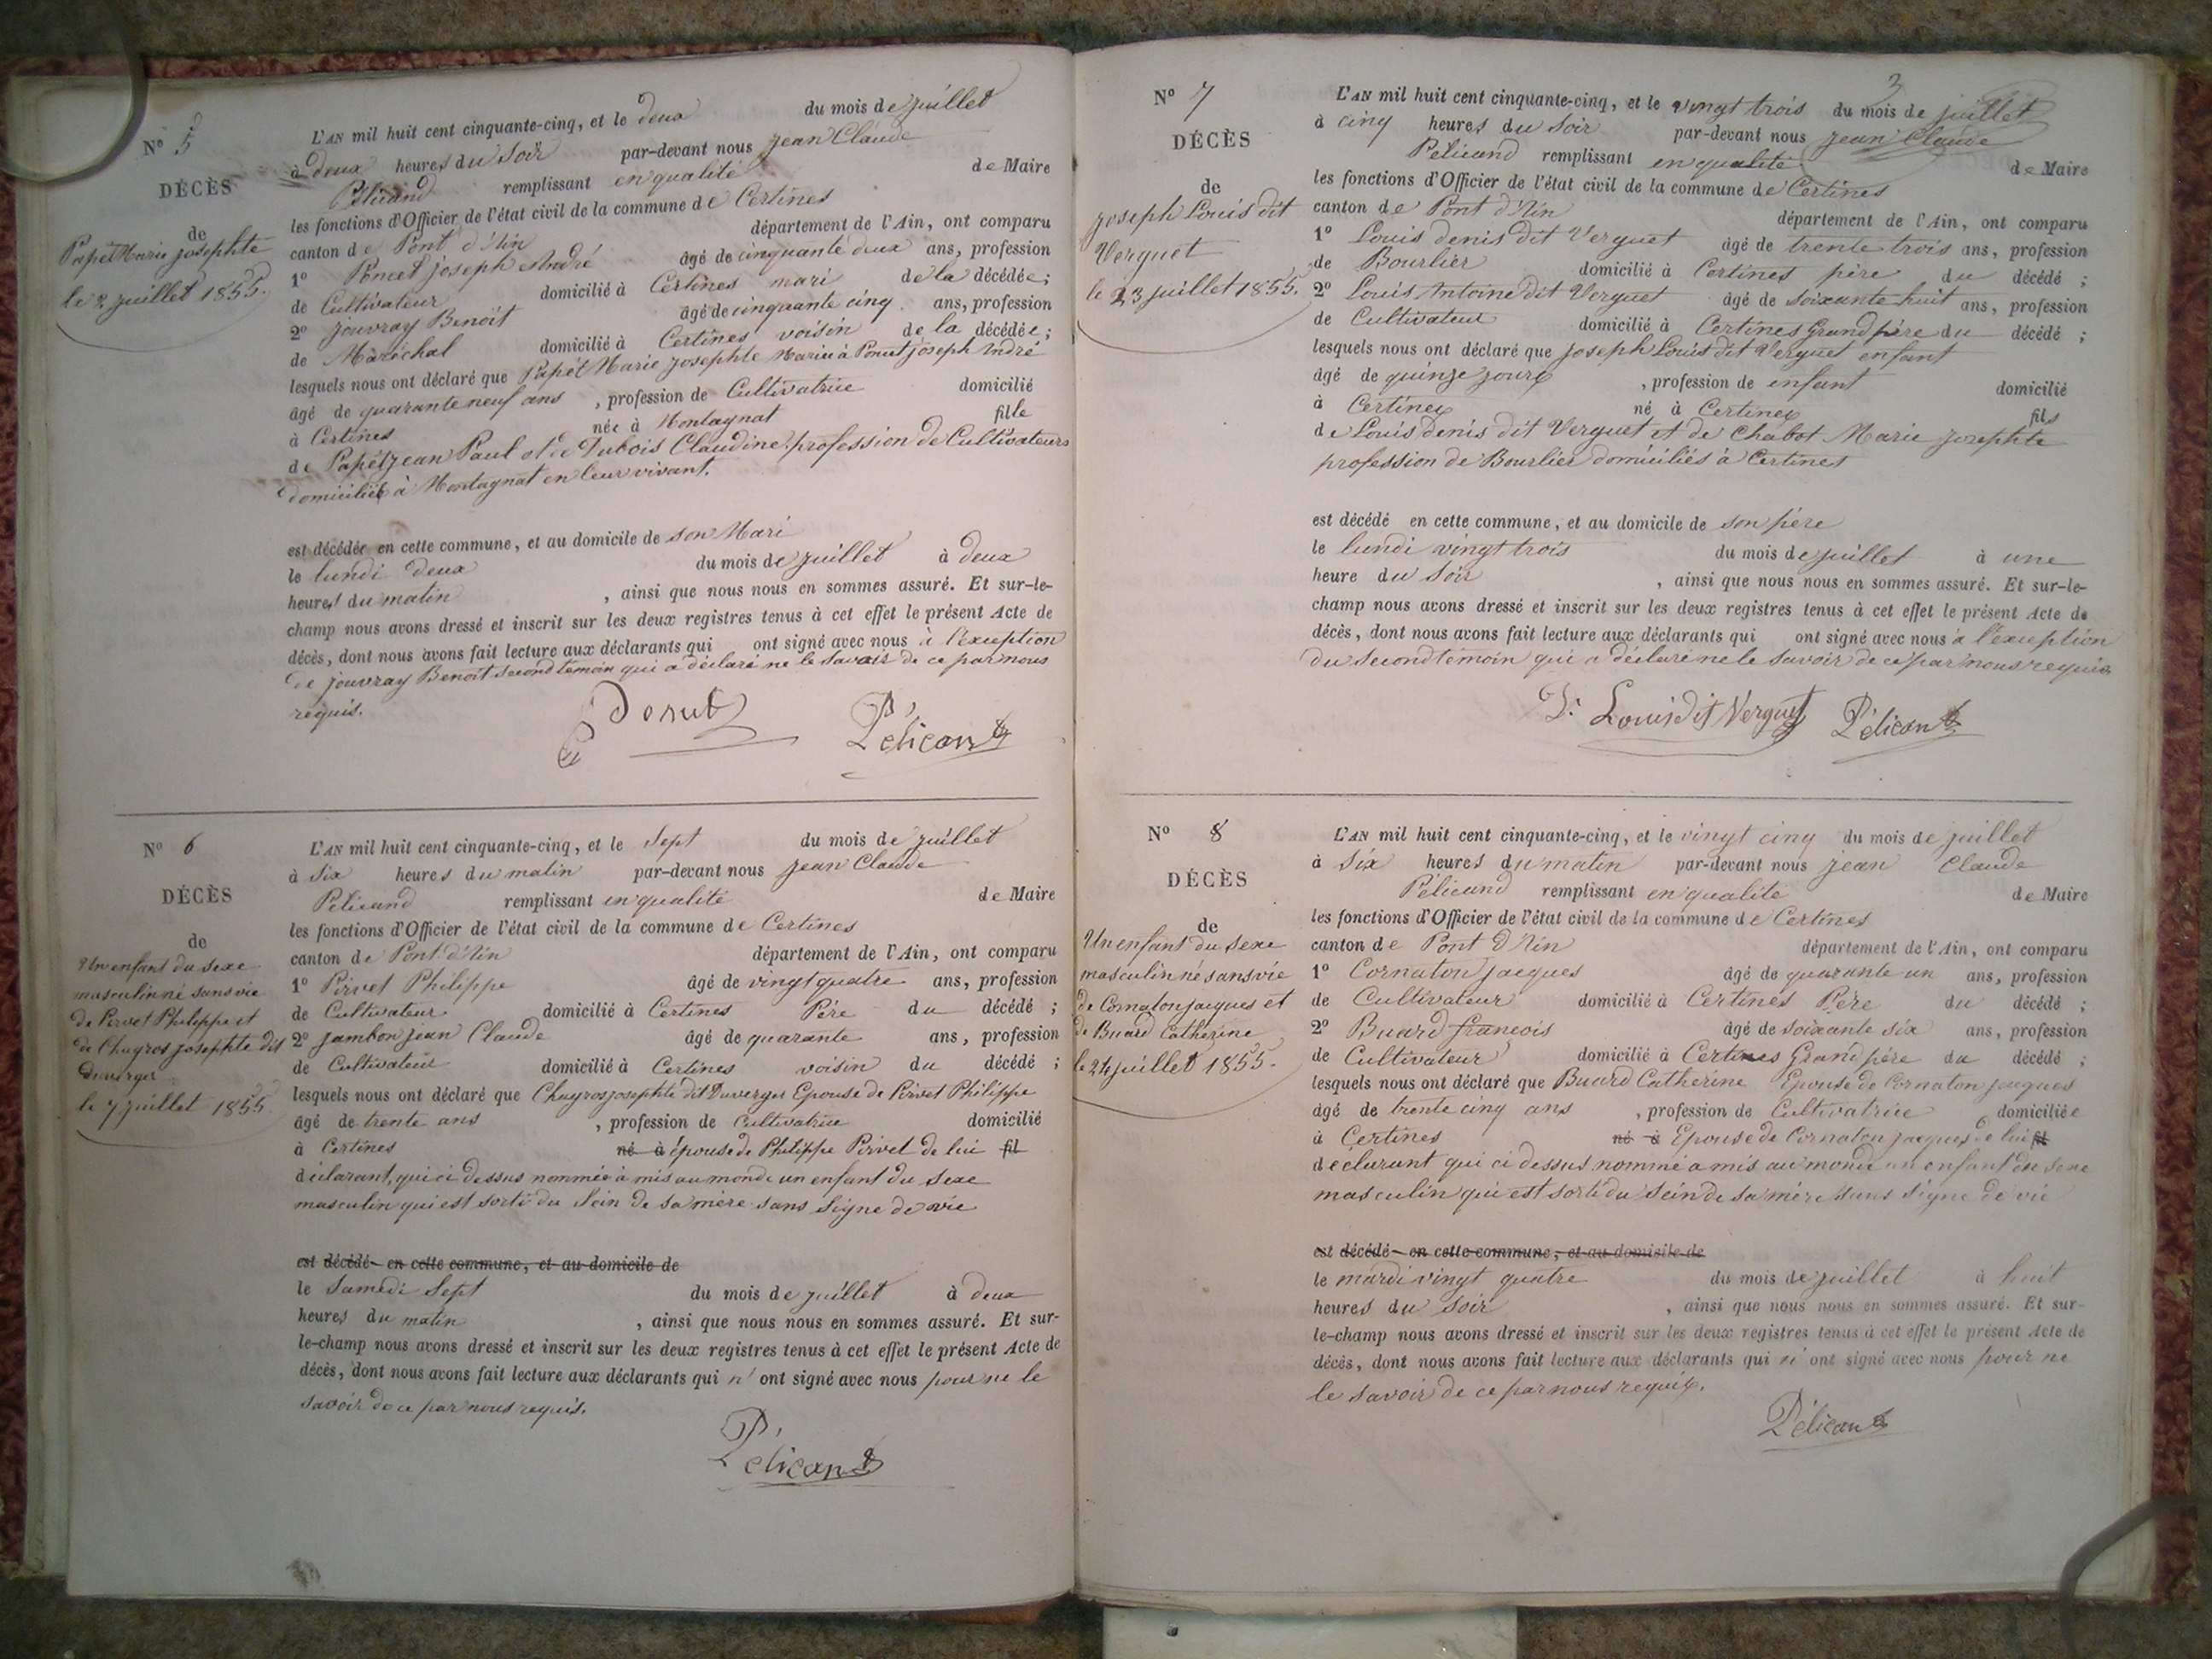 Nº 5
DÉCÈS
de
Papet Marie josephte
le 2 juillet 1855.
L'AN mil huit cent cinquante-cinq, et le deux du mois de juillet
à deux heures du Soir par-devant nous jean Claude
Pélicand remplissant en qualité de Maire
les fonctions d'Officier de l'état civil de la commune de Certines
canton de Pont d'Ain département de l'Ain, ont comparu
1º Poncet joseph André âgé de cinquante deux ans, profession
de Cultivateur domicilié à Certines mari de la décédée;
2º jouvray Benoit âgé de cinquante cinq ans, profession
de Maréchal domicilié à Certines voisin de la décédée;
lesquels nous ont déclaré que Papet Marie josephte Mariée à Poncet joseph André
âgé de quarante neuf ans, profession de Cultivatrice domicilié
à Certines née à Montagnat fille
de Papet jean Paul et de Dubois Claudine profession de Cultivateurs
domiciliés à Montagnat en leur vivant.
est décédée en cette commune, et au domicile de son Mari
le lundi deux du mois de juillet à deux
heures du matin, ainsi que nous nous en sommes assuré. Et sur-le-
champ nous avons dressé et inscrit sur les deux registres tenus à cet effet le présent Acte de
décès, dont nous avons fait lecture aux déclarants qui ont signé avec nous à l'exception
de jouvray Benoit second témoin qui a déclaré ne le savoir de ce par nous
requis.
Pélicand
Nº 6
DÉCÈS
de
Un enfant du sexe
masculin né sans vie
de Pirvet Philippe et
de Chagros josephte dit
Duverger
le 7 juillet 1855.
L'AN mil huit cent cinquante-cinq, et le Sept du mois de juillet
à six heures du matin par-devant nous jean Claude
Pélicand remplissant en qualité de Maire
les fonctions d'Officier de l'état civil de la commune de Certines
canton de Pont d'Ain département de l'Ain, ont comparu
1º Pirvet Philippe âgé de vingt quatre ans, profession
de Cultivateur domicilié à Certines Père du décédé;
2º jambon jean Claude âgé de quarante ans, profession
de Cultivateur domicilié à Certines voisin du décédé;
lesquels nous ont déclaré que Chagros josephte dit Duverger Epouse de Pirvet Philippe
âgé de trente ans, profession de Cultivatrice domicilié
à Certines né à épouse de Philippe Pirvet de lui fil
déclarant, qui ci dessus nommée à mis au monde un enfant du sexe
masculin qui est sorti du Sein de sa mère sans signe de vie
est décédé en cette commune, et au domicile de
le Samedi Sept du mois de juillet à deux
heures du matin, ainsi que nous nous en sommes assuré. Et sur-
le-champ nous avons dressé et inscrit sur les deux registres tenus à cet effet le présent Acte de
décès, dont nous avons fait lecture aux déclarants qui n'ont signé avec nous pour ne le
savoir de ce par nous requis.
Pélicand
3
Nº 7
DÉCÈS
de
joseph Louis dit
Verguet
le 23 juillet 1855.
L'AN mil huit cent cinquante-cinq, et le vingt trois du mois de juillet
à cinq heures du Soir par-devant nous jean Claude
Pélicand remplissant en qualité de Maire
les fonctions d'Officier de l'état civil de la commune de Certines
canton de Pont d'Ain département de l'Ain, ont comparu
1º Louis denis dit Verguet âgé de trente trois ans, profession
de Bourlier domicilié à Certines père du décédé;
2º Louis Antoine dit Verguet âgé de soixante huit ans, profession
de Cultivateur domicilié à Certines Grand père du décédé;
lesquels nous ont déclaré que joseph Louis dit Verguet enfant
âgé de quinze jours, profession de enfant domicilié
à Certines né à Certines fils
de Louis denis dit Verguet et de Chabot Marie josephte
profession de Bourlier domiciliés à Certines
est décédé en cette commune, et au domicile de son père
le lundi vingt trois du mois de juillet à une
heure du Soir, ainsi que nous nous en sommes assuré. Et sur-le-
champ nous avons dressé et inscrit sur les deux registres tenus à cet effet le présent Acte de
décès, dont nous avons fait lecture aux déclarants qui ont signé avec nous à l'exception
du second témoin qui a déclaré ne le savoir de ce par nous requis
D. Louis dit Verguet Pélicand
Nº 8
DÉCÈS
de
Un enfant du sexe
masculin né sans vie
de Cornaton jacques et
de Buard Catherine
le 24 juillet 1855.
L'AN mil huit cent cinquante-cinq, et le vingt cinq du mois de juillet
à six heures du matin par-devant nous jean Claude
Pélicand remplissant en qualité de Maire
les fonctions d'Officier de l'état civil de la commune de Certines
canton de Pont d'Ain département de l'Ain, ont comparu
1º Cornaton jacques âgé de quarante un ans, profession
de Cultivateur domicilié à Certines Père du décédé;
2º Buard françois âgé de soixante six ans, profession
de Cultivateur domicilié à Certines Grand père du décédé;
lesquels nous ont déclaré que Buard Catherine Epouse de Cornaton jacques
âgé de trente cinq ans, profession de Cultivatrice domiciliée
à Certines né à Epouse de Cornaton jacques de lui fil
déclarant qui ci dessus nommé a mis au monde un enfant du sexe
masculin qui est sorti du sein de sa mère sans signe de vie
est décédé en cette commune, et au domicile de
le mardi vingt quatre du mois de juillet à huit
heures du soir, ainsi que nous nous en sommes assuré. Et sur-
le-champ nous avons dressé et inscrit sur les deux registres tenus à cet effet le présent Acte de
décès, dont nous avons fait lecture aux déclarants qui n'ont signé avec nous pour ne
le savoir de ce par nous requis.
Pélicand